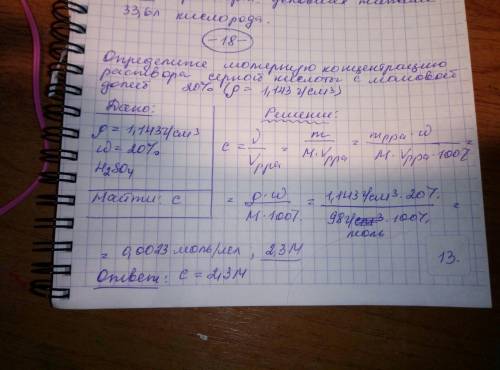 условиях
33,6л кислорода.
-18-
Определите молярную концентрацию
раствора серной кислоты с массовой
долей 20% (ρ = 1,143 г/см³)
Дано:
ρ = 1,143 г/см³
ω = 20%
H₂SO₄
Найти: c
Решение:
c = ν/Vр-ра = m/(M·Vр-ра) = (mр-ра · ω)/(M·Vр-ра·100%) =
= (ρ·ω)/(M·100%) = (1,143 г/см³·20%)/(98 г/моль·100%) =
= 0,0023 моль/мл, 2,3М
Ответ: c = 2,3М
13.